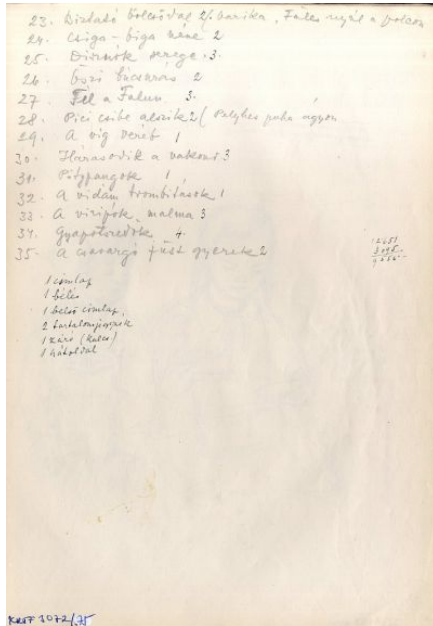 23. Biztató bölcsődal 2 / barika, Füles nyúl a polcon
24. Csiga-biga néne 2
25. Disznók serege. 3.
26. Őszi búcsúzás 2
27. Tél a falun 3.
28. Pici csibe alszik 2 ( Pelyhes puha ágyon
29. A víg veréb 1
30. Házasodik a vakond 3
31. Pitypangok 1
32. A vidám trombitások 1
33. A malma 3
34. 4.
35. A csavargó füst gyerek 2
1 címlap
1 belső címlap,
2 tartalomjegyzék
1 záró
1 hátoldal
KmF 1072/75